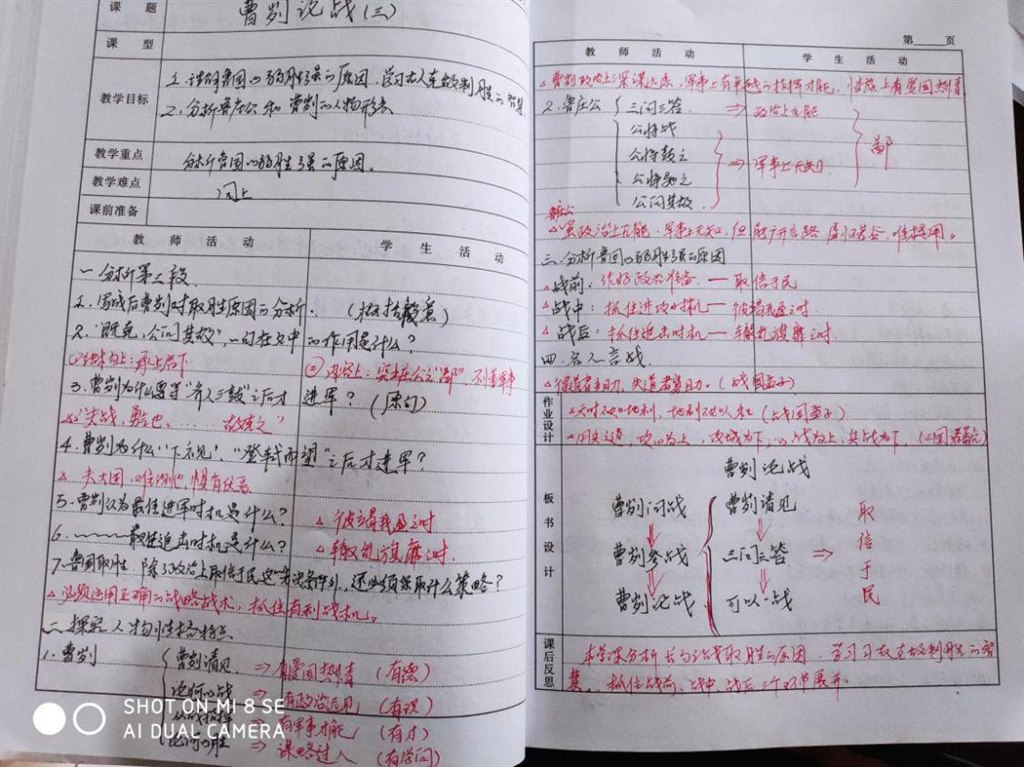 课 题 曹刿论战(三)
课 型
教学目标 1.理解鲁国以弱胜强的原因,学习古人克敌制胜的智慧
2.分析鲁庄公和曹刿的人物形象
教学重点 分析鲁国以弱胜强的原因。
教学难点 同上
课前准备
教 师 活 动 学 生 活 动
一 分析第三段
1.写战后曹刿对取胜原因的分析. (概括段意)
2."既克,公问其故",一句在文中的作用是什么?
①结构上:承上启下 ②内容上:突出庄公之"鄙" 不懂军事
3.曹刿为什么要等"齐人三鼓"之后才进军?(原句)
"夫战,勇气也,…… 故克之"
4.曹刿为什么"下视"、"登轼而望"之后才进军?
△ 夫大国,难测也,惧有伏焉
5.曹刿认为最佳进军时机是什么? △ 彼竭我盈之时
6. 最佳追击时机是什么? △ 辙乱旗靡之时.
7.鲁国取胜 除了政治上取信于民这一先决条件外,还必须采取什么策略?
△必须运用正确的战略战术,抓住有利战机。
二 探究人物性格特点.
1.曹刿 曹刿请见 ⇒ 有爱国热情 (有德)
论何以战 ⇒ 有政治远见 (有识)
⇒ 有军事才能 (有才)
论何以胜 ⇒ 谋略过人 (有学问)
SHOT ON MI 8 SE
AI DUAL CAMERA
第 页
教 师 活 动 学 生 活 动
△曹刿政治上深谋远虑,军事上有卓越的指挥才能,情感上有爱国热情
2.鲁庄公 三问三答 ⇒ 政治上无能
公将战
公将鼓之 ⇒ 军事上无知 鄙
公将驰之
公问其故
鲁庄公
△虽政治上无能 军事上无知,但能广开言路 虚怀若谷,唯才是用。
三.分析鲁国以弱胜强的原因
△战前:作好政治准备 — 取信于民
△战中:抓住进攻时机 — 彼竭我盈之时
△战后:抓住追击时机 — 辙乱旗靡之时.
四.名人言战
△得道者多助,失道者寡助。(战国孟子)
作业设计 △天时不如地利,地利不如人和 (战国孟子)
△用兵之道,攻心为上,攻城为下;心战为上,兵战为下。
板书设计 曹刿论战
曹刿问战 曹刿请见 取
曹刿参战 三问三答 ⇒ 信于
曹刿论战 可以一战 民
课后反思 本堂课分析长勺之战取胜的原因 学习古人克敌制胜的智
慧. 抓住战前、战中、战后三个环节展开.